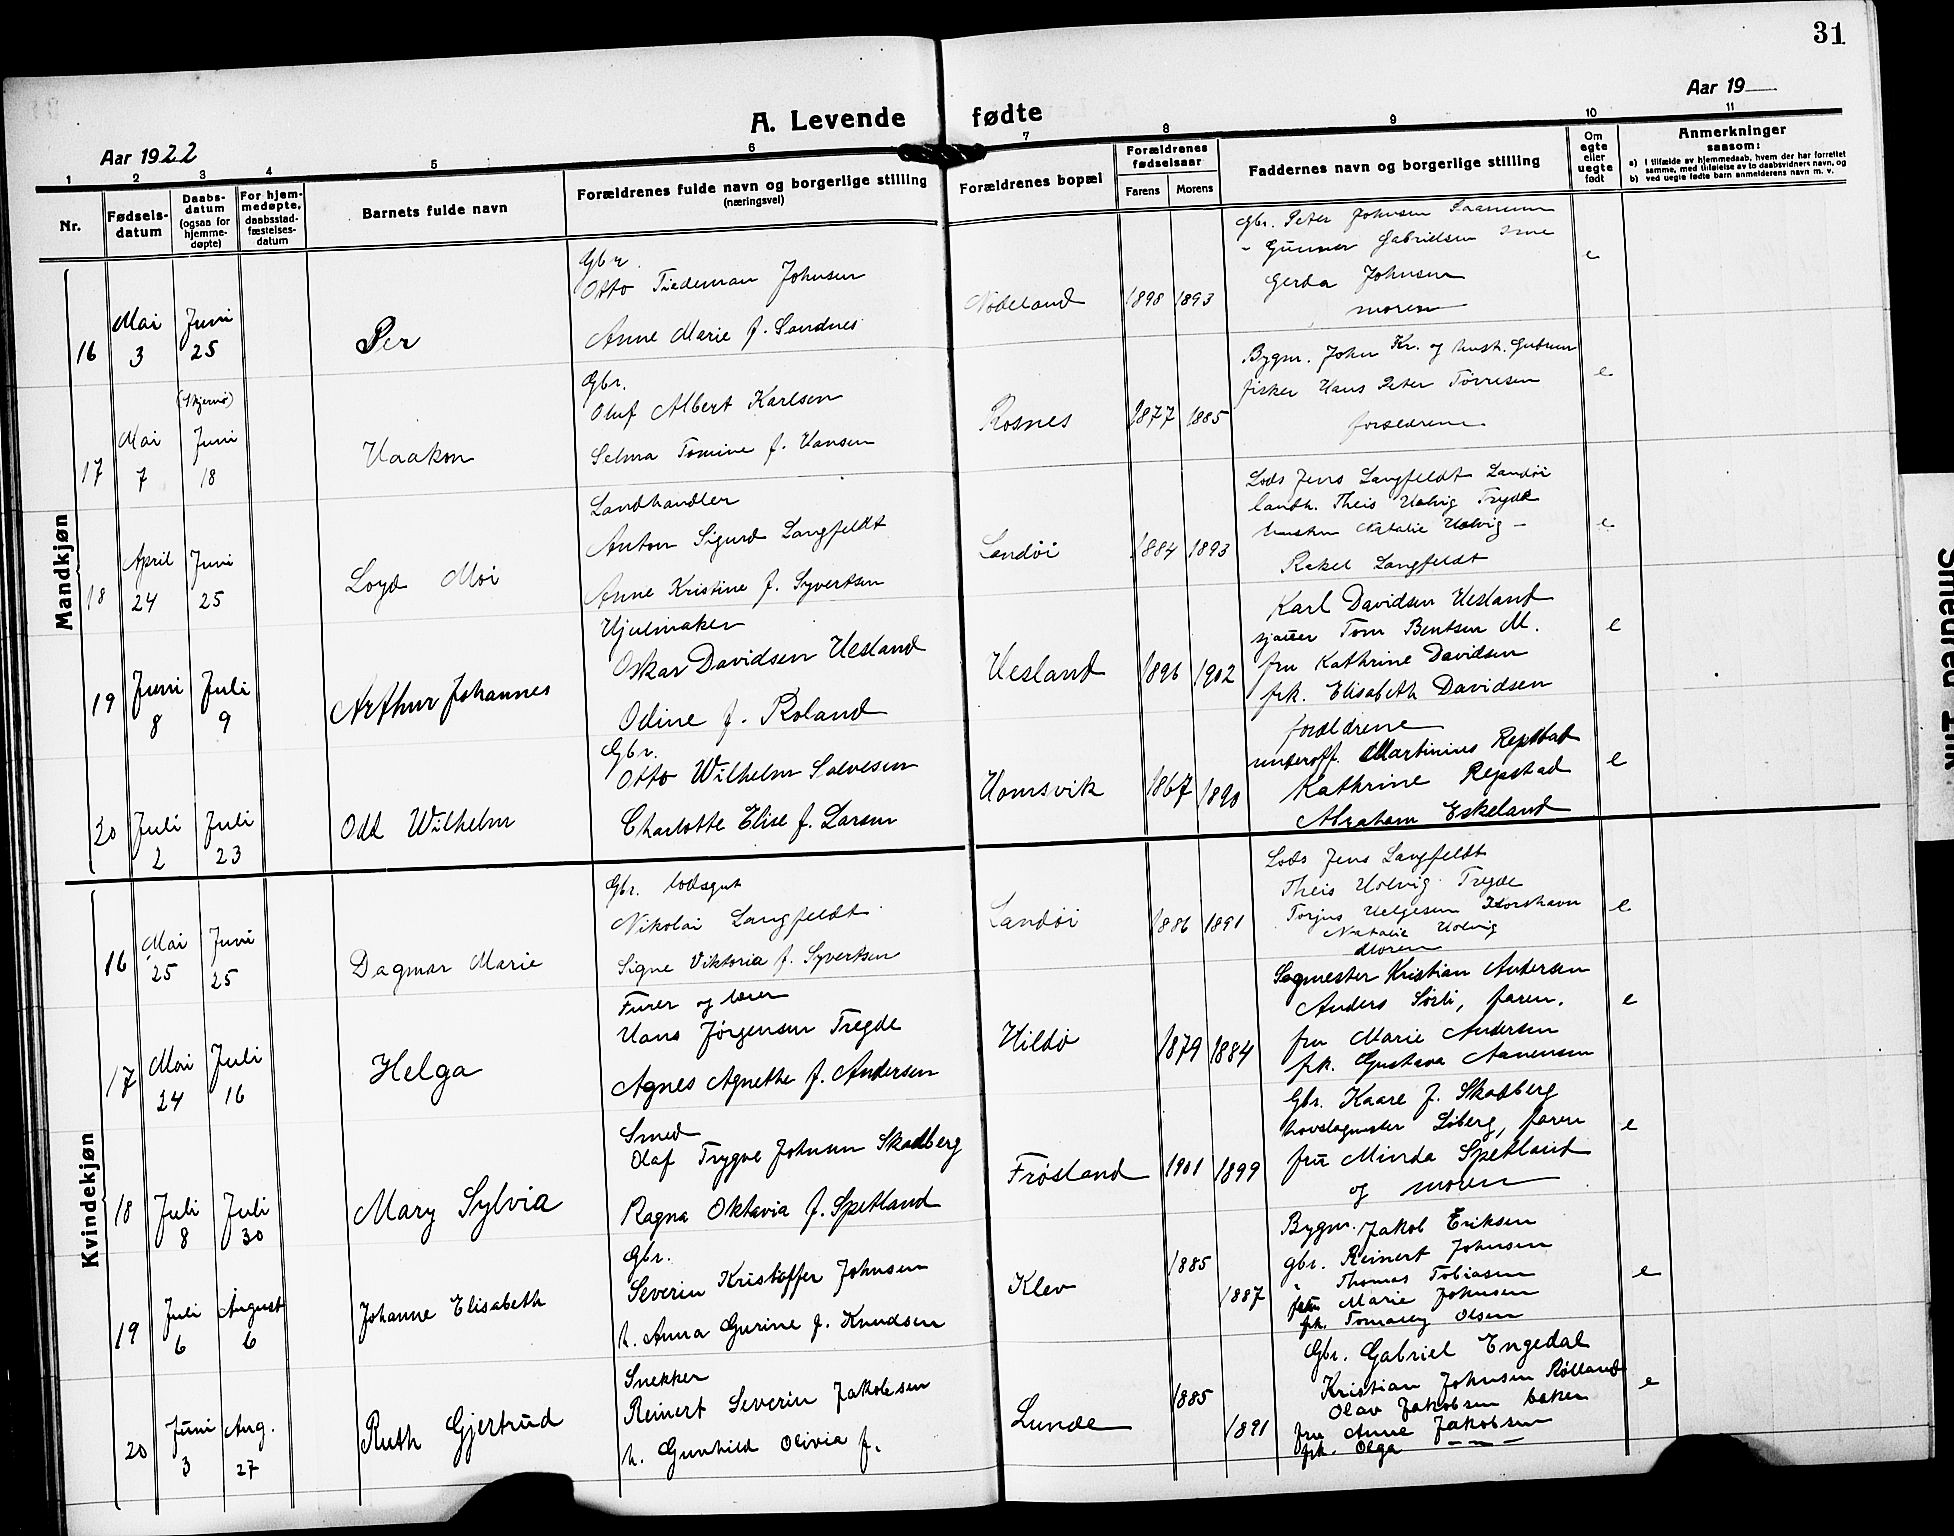 31
Aar 1922
A. Levende fødte
Aar 19
1 2 3 4 5 6 7 8 9 10 11
Nr.
Fødsels-datum
Daabs-datum (ogsaa for hjemme-døpte)
For hjem-medøpte, daabsstad-fæstelses-datum
Barnets fulde navn
Forældrenes fulde navn og borgerlige stilling (næringsvei)
Forældrenes bopæl
Forældrenes fødselsaar
Farens. Morens
Faddernes navn og borgerlige stilling
Om egte eller uegte født
Anmerkninger saasom:
a) I tilfælde av hjemmedaab, hvem der har forrettet samme, med tilføielse av to daabsvidners navn, og
b) ved uegte fødte barn anmelderens navn m. v.
Mandkjøn
16 Mai 3 Juni 25 Per
Gbr.
Otto Tiedeman Johnsen
Anne Marie f. Sandnes
Nodeland 1898 1893
Gbr. Peter Johnsen
" Gunnar Gabrielsen
Gerda Johnsen
moren
e
17 Mai 7 (Skjernø) Juni 18 Haakon
Gbr.
Oluf Albert Karlsen
Selma Tomine f. Hansen
Rosnes 1877 1885
Bygm. John Kr. og hust. Gudrun
fisker Hans Peter Tørresen
forældrene
e
18 April 24 Juni 25 Loyd Moi
Landhandler
Anton Sigurd Langfeldt
Anne Kristine f. Syvertsen
Landøi 1884 1893
Lods Jens Langfeldt Landøi
landh. Theis Udvig Tregde
hustru Natalie Udvig —
Rakel Langfeldt
e
19 Juni 8 Juli 9 Arthur Johannes
Hjulmaker
Oskar Davidsen Uesland
Odine f. Roland
Uesland 1896 1902
Karl Davidsen Uesland
sjauer Tom Bentsen M.
fru Kathrine Davidsen
frk. Elisabeth Davidsen
forældrene
e
20 Juli 2 Juli 23 Odd Wilhelm
Gbr.
Otto Wilhelm Salvesen
Charlotte Elise f. Larsen
Homsvik 1867 1890
underoff. Martinius Repstad
Kathrine Repstad
Abraham Eskeland
e
Kvindekjøn
16 Mai 25 Juni 25 Dagmar Marie
Gbr. lodsgut
Nikolai Langfeldt
Signe Viktoria f. Syvertsen
Landøi 1886 1891
Lods Jens Langfeldt
Theis Udvig Tregde
Torjus Helgesen
Natalie Udvig
Moren
e
17 Mai 24 Juli 16 Helga
Furer og lærer
Hans Jørgensen Tregde
Agnes Agnethe f. Andersen
Hildø 1879 1884
Sagmester Kristian Andersen
Anders Sørli, faren.
fru Marie Andersen
frk. Gustava Aanensen
e
18 Juli 8 Juli 30 Mary Sylvia
Smed
Olaf Trygve Johnsen Skadberg
Ragna Oktavia f. Spetland
Frøsland 1901 1899
Gbr. Kaare J. Skadberg
hovslagmester Søberg, faren
fru Minda Spetland
og moren
e
19 Juli 6 August 6 Johanne Elisabeth
Gbr.
Severin Kristoffer Johnsen
h. Anna Gurine f. Knudsen
Klev 1885 1887
Bygm. Jakob Eriksen
gbr. Reinert Johnsen
" Thomas Tobiasen
fru Marie Johnsen
frk. Tomasey Olsen
e
20 Juni 3 Aug. 27 Ruth Gjertrud
Snekker
Reinert Severin Jakobsen
h. Gunhild Olivia f.
Lunde 1885 1891
Gbr. Gabriel Engedal
Kristian Johnsen Rølland
Olav Jakobsen baker
fru Anne Jakobsen
frk. Olga — " —
e